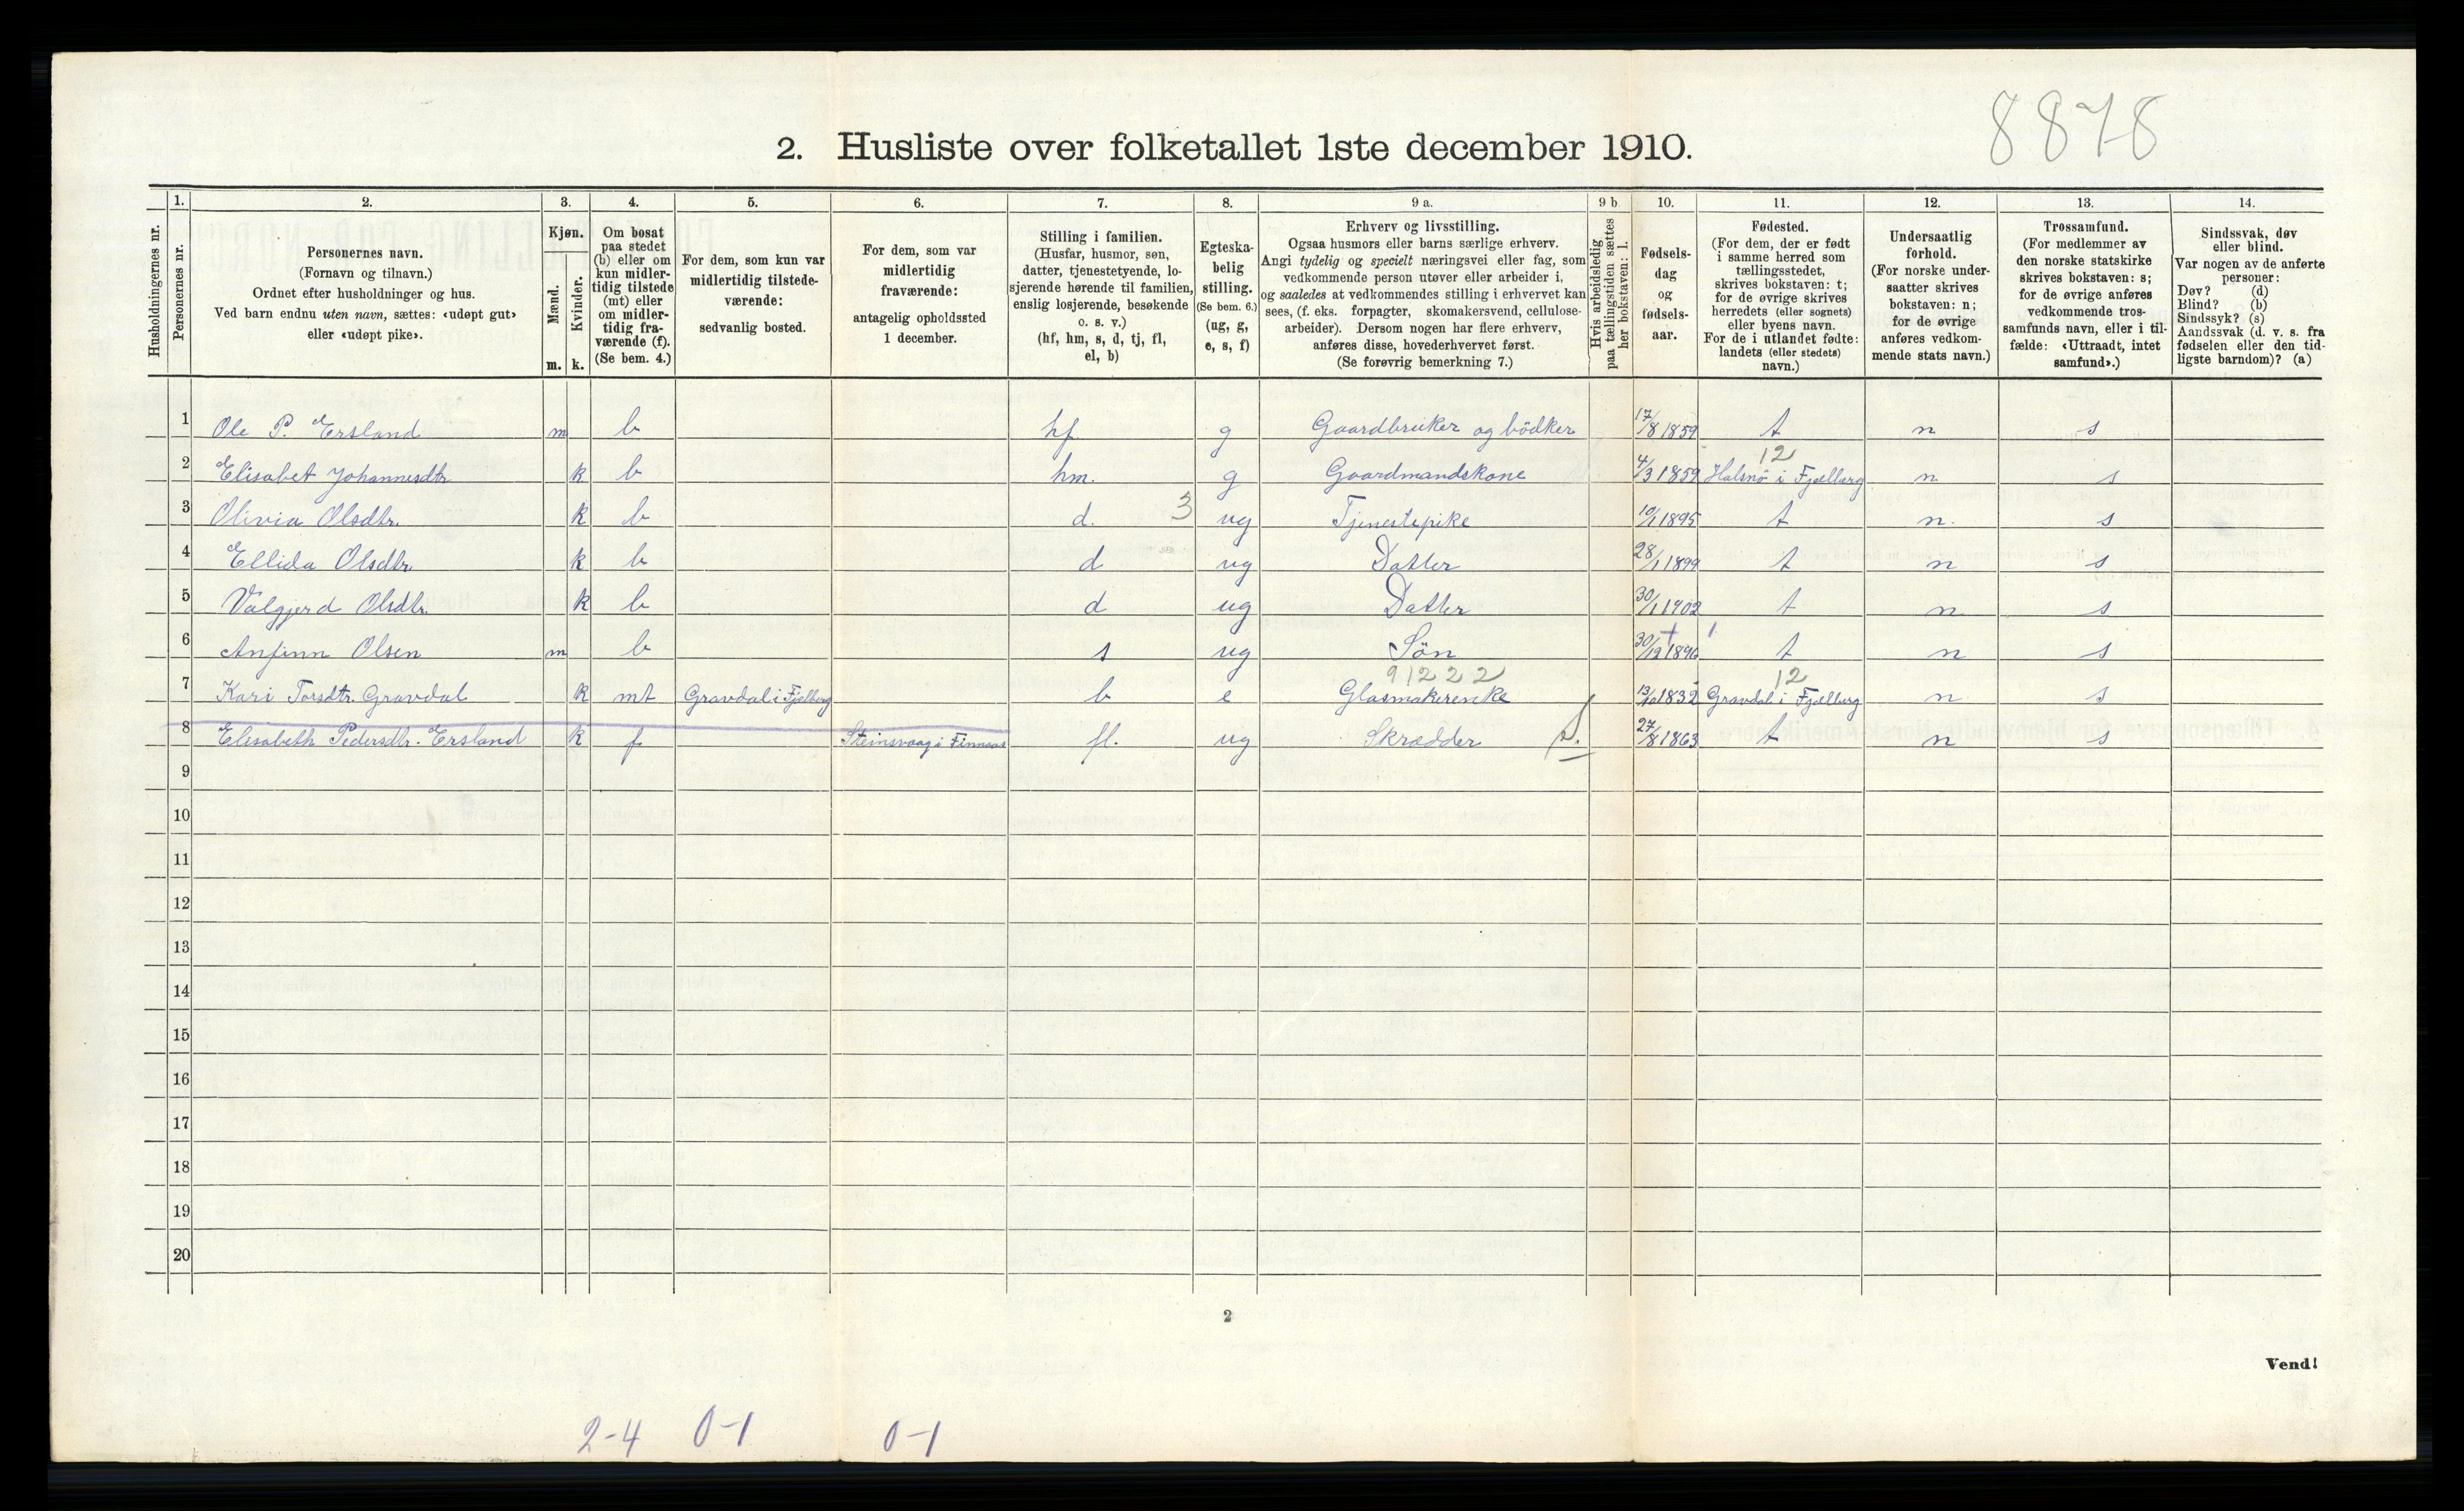 8878
2. Husliste over folketallet 1ste december 1910.
Husholdningernes nr.
1. Personernes nr.
2. Personernes navn. (Fornavn og tilnavn.) Ordnet efter husholdninger og hus. Ved barn endnu uten navn, sættes: «udøpt gut» eller «udøpt pike».
3. Kjøn. Mænd. m. Kvinder. k.
4. Om bosat paa stedet (b) eller om kun midlertidig tilstede (mt) eller om midlertidig fraværende (f). (Se bem. 4.)
5. For dem, som kun var midlertidig tilstedeværende: sedvanlig bosted.
6. For dem, som var midlertidig fraværende: antagelig opholdssted 1 december.
7. Stilling i familien. (Husfar, husmor, søn, datter, tjenestetyende, losjerende hørende til familien, enslig losjerende, besøkende o. s. v.) (hf, hm, s, d, tj, fl, el, b)
8. Egteskabelig stilling. (Se bem. 6.) (ug, g, e, s, f)
9 a. Erhverv og livsstilling. Ogsaa husmors eller barns særlige erhverv. Angi tydelig og specielt næringsvei eller fag, som vedkommende person utøver eller arbeider i, og saaledes at vedkommendes stilling i erhvervet kan sees, (f. eks. forpagter, skomakersvend, cellulosearbeider). Dersom nogen har flere erhverv, anføres disse, hovederhvervet først. (Se forøvrig bemerkning 7.)
9 b Hvis arbeidsledig paa tællingstiden sættes her bokstaven: l.
10. Fødselsdag og fødselsaar.
11. Fødested. (For dem, der er født i samme herred som tællingsstedet, skrives bokstaven: t; for de øvrige skrives herredets (eller sognets) eller byens navn. For de i utlandet fødte: landets (eller stedets) navn.)
12. Undersaatlig forhold. (For norske undersaatter skrives bokstaven: n; for de øvrige anføres vedkommende stats navn.)
13. Trossamfund. (For medlemmer av den norske statskirke skrives bokstaven: s; for de øvrige anføres vedkommende trossamfunds navn, eller i tilfælde: «Uttraadt, intet samfund».)
14. Sindssvak, døv eller blind. Var nogen av de anførte personer: Døv? (d) Blind? (b) Sindssyk? (s) Aandssvak (d. v. s. fra fødselen eller den tidligste barndom)? (a)
1 Ole P. Ersland m b hf g Gaardbruker og bödker 17/8 1859 t n s
12
2 Elisabet Johannesdtr k b hm. g Gaardmandskone 4/3 1859 Halsnö i Fjelberg n s
3 Olivia Olsdtr. k b d. 3 ug Tjenestepike 10/1 1895 t n. s
4 Ellida Olsdtr. k b d ug Datter 28/1 1899 t n s
5 Valgjerd Olsdtr. k b d ug Datter 30/1 1902 t n s
6 Anfinn Olsen m b s ug Sön 30/12 1896 t n s
91222 12
7 Kari Torsdtr. Gravdal k mt Gravdal i Fjelberg b e Glasmakerenke 13/10 1832 Gravdal i Fjelberg n s
8 Elisabeth Pedersdtr. Ersland k f Steinsvaag i Finnaas fl. ug Skrædder S. 27/8 1863 t n s
9
10
11
12
13
14
15
16
17
18
19
20
2
Vend!
2-4 0-1 0-1